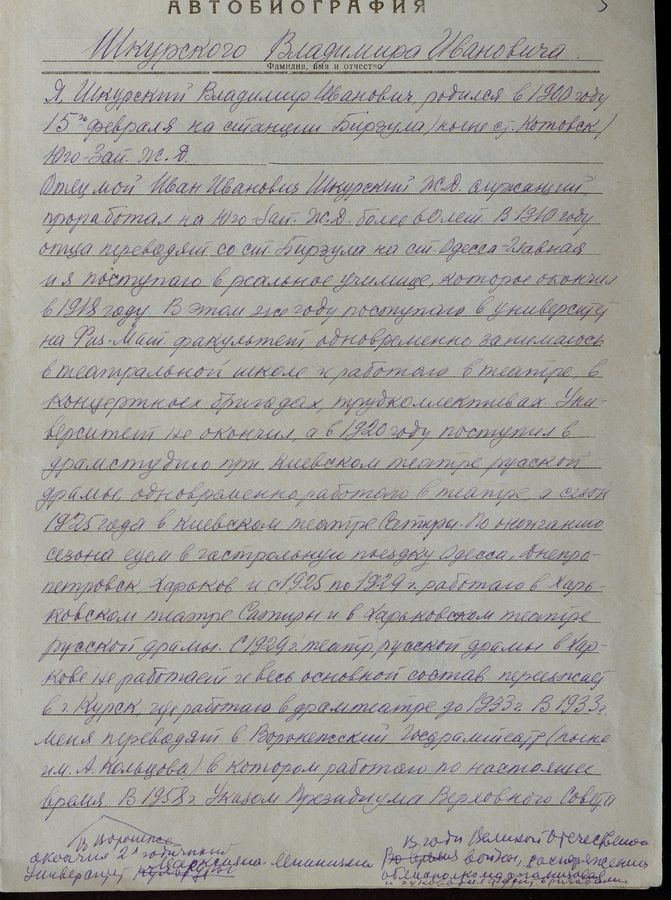 АВТОБИОГРАФИЯ
Шкурского Владимира Ивановича.
Фамилия, имя и отчество
Я, Шкурский Владимир Иванович, родился в 1900 году
15го февраля на станции Бирзула (ныне ст. Котовск)
Юго-Зап. Ж.Д.
Отец мой Иван Иванович Шкурский Ж.Д. служащий,
проработал на Юго-Зап. Ж.Д. более 60 лет. В 1910 году
отца переводят со ст. Бирзула на ст. Одесса-Главная
и я поступаю в реальное училище, которое окончил
в 1918 году. В этом же году поступаю в университет
на Физ-Мат. факультет, одновременно занимаюсь
в театральной школе и работаю в театре, в
концертных бригадах, трудколлективах. Уни-
верситет не окончил, а в 1920 году поступил в
драмстудию при Киевском театре русской
драмы, одновременно работаю в театре, а сезон
1925 года в Киевском театре Сатиры. По окончанию
сезона едем в гастрольную поездку Одесса, Днепро-
петровск, Харьков и с 1925 по 1929 г. работаю в Харь-
ковском театре Сатиры и в Харьковском театре
русской драмы. С 1929 г. театр русской драмы в Харь-
кове не работает и весь основной состав переезжает
в г. Курск, где работаю в драмтеатре до 1933 г. В 1933 г.
меня переводят в Воронежский Госдрамтеатр (ныне
им. А. Кольцова) в котором работаю по настоящее
время. В 1958 г. Указом Президиума Верховного Совета
В Воронеже
окончил 2х годичный
Университет Марксизма-Ленинизма
В годы Великой Отечественной
войны, распоряжением
облисполкома организовал
и руководил фронт. бригадами